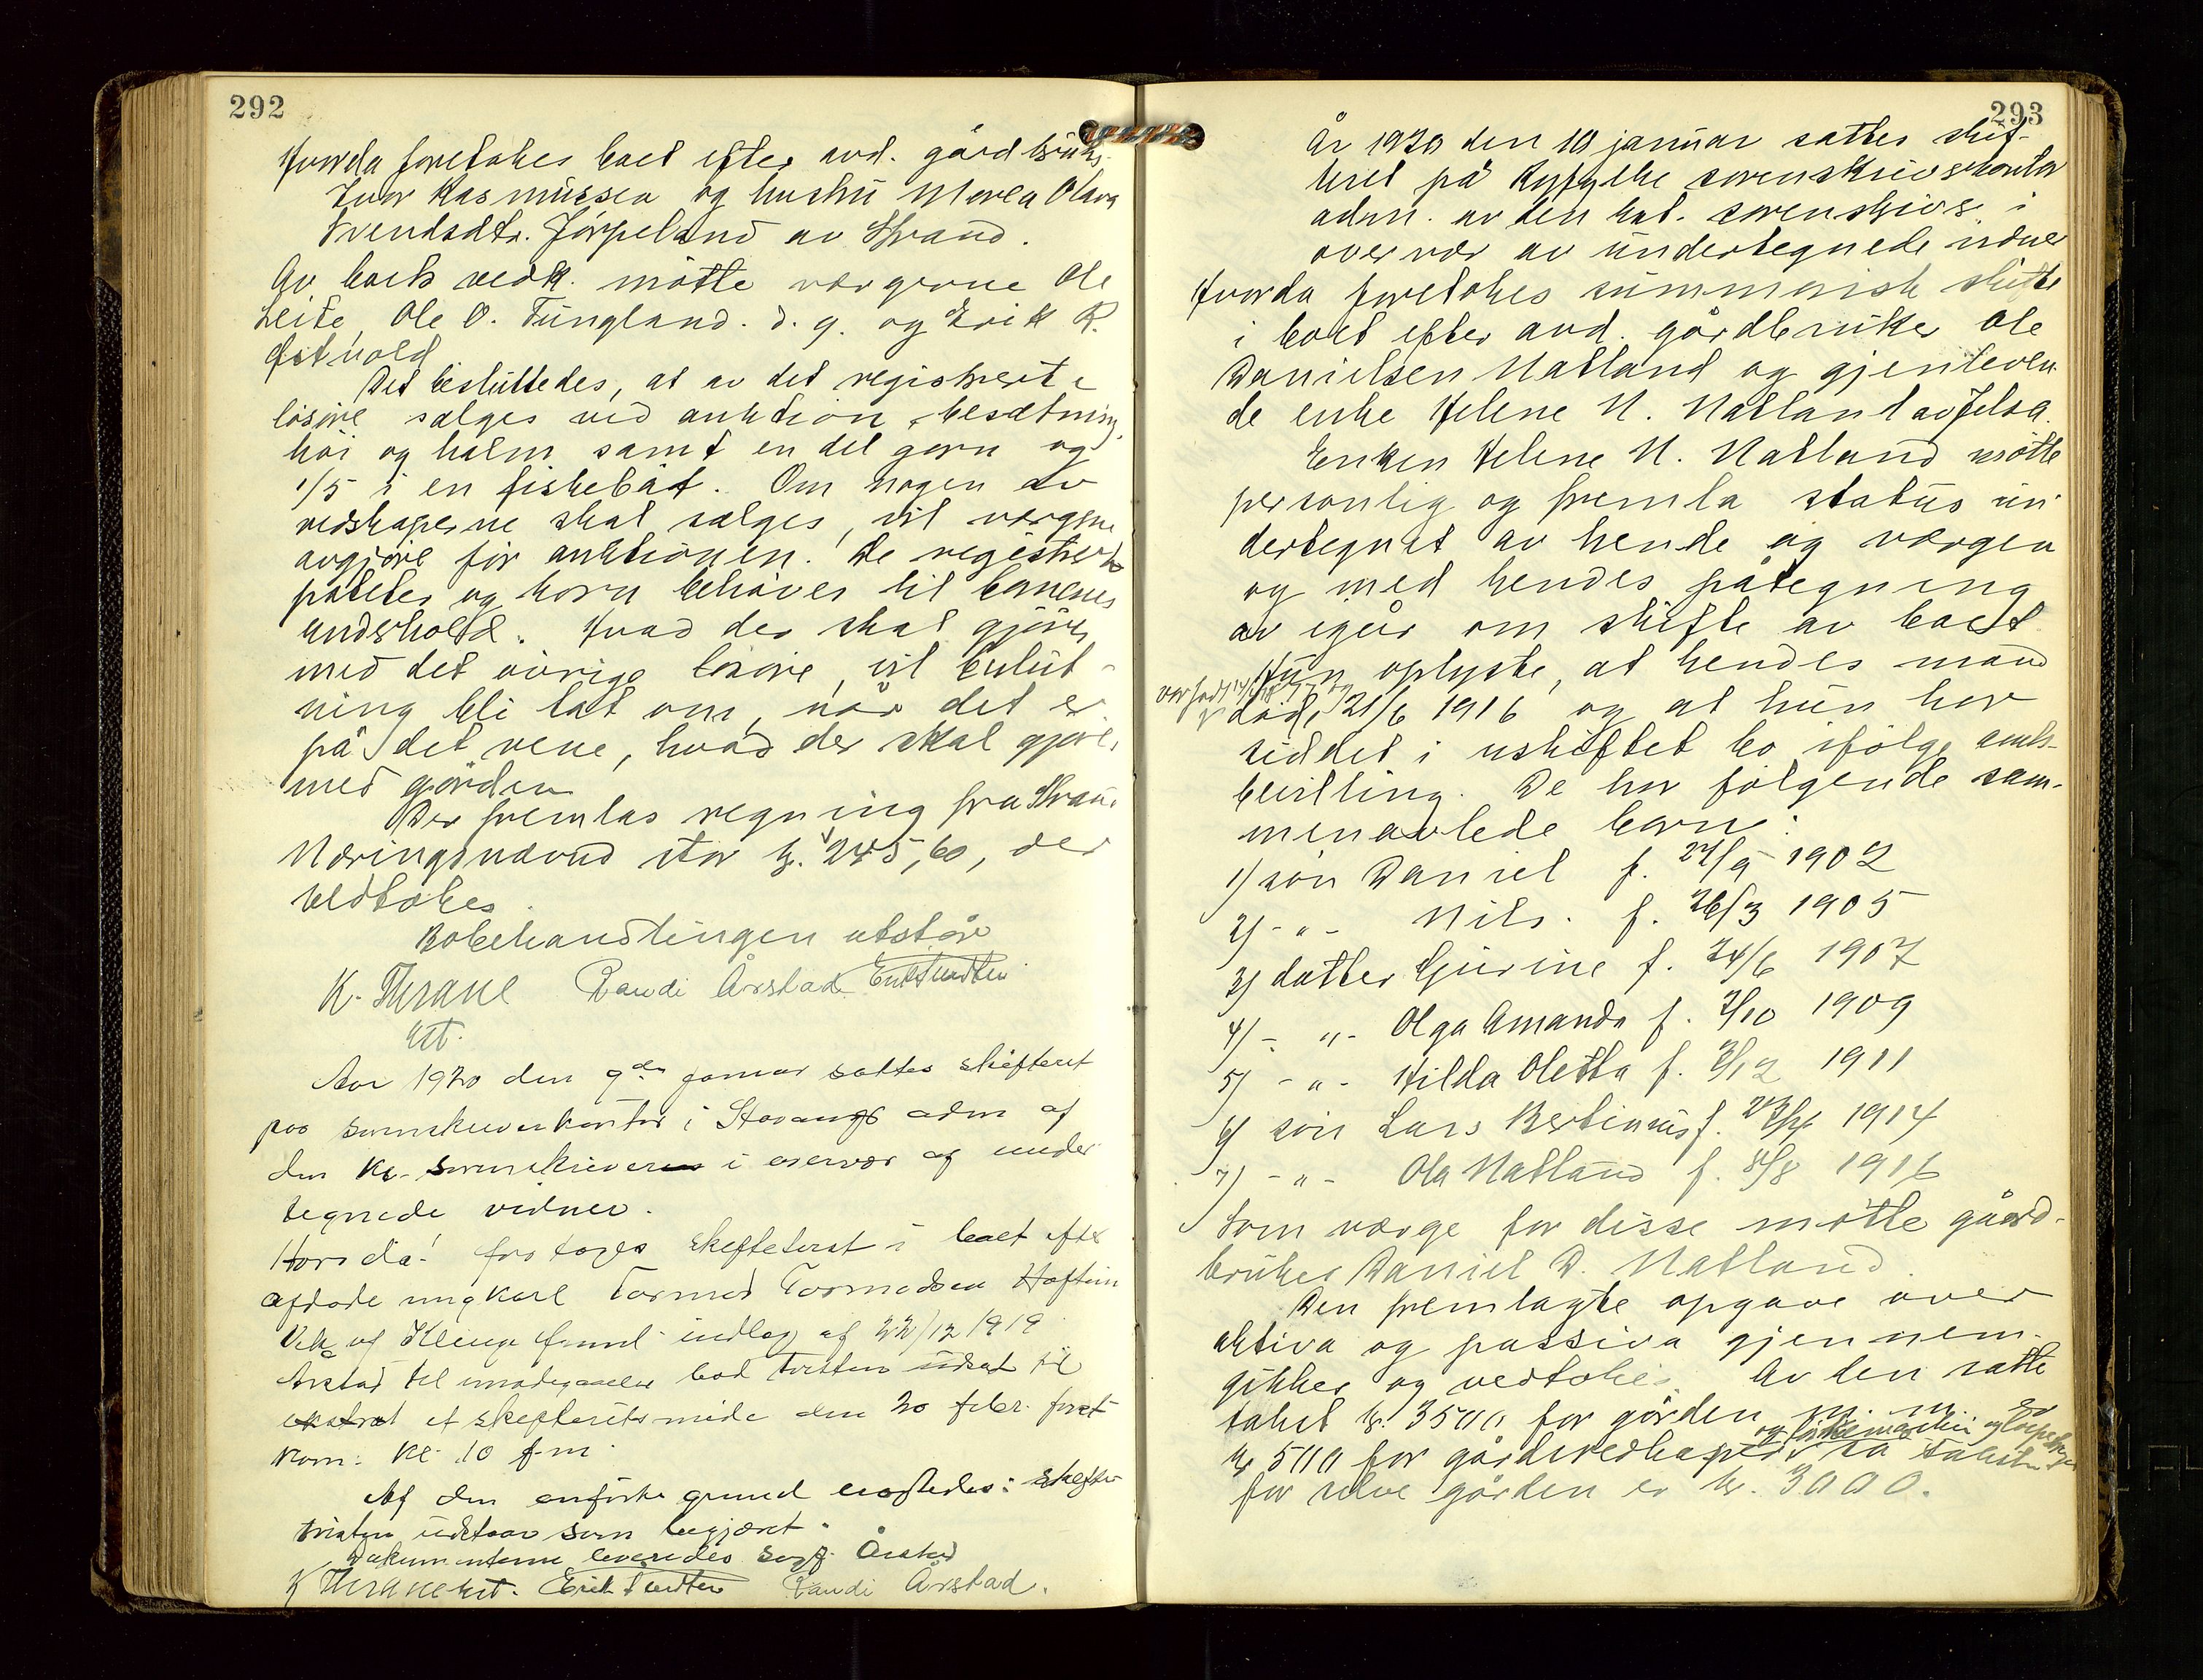 292
Hvorda foretokes boet efter avd. gårdbruk.
Ivar Rasmussen og hustru Marta Olava
Svendsdtr. Jörpeland av Strand.
Av boets vedk. mötte værgerne Ole
Leite, Ole O. Tungland. d. y. og Erik R.
Det besluttedes, at av det registrerte
lösöre sælges ved auktion, besætning,
höi og halm samt en del garn og
1/5 i en fiskebåt. Om nogen av
redskaperne skal sælges, vil værgene
avgjöre för auktionen. De registrerte
poteter og korn behöves til barnenes
underhold. Hvad der skal gjöres
med det övrige lösöre, vil beslut-
ning bli tat om, når det er
på det rene, hvad der skal gjöres
med gården
Der fremlas regning fra Strand
Næringsnævnd stor kr. 245,60, der
vedtokes.
Bobehandlingen utstår
K. Thrane Randi Årstad Erik Tendten
kst.
Aar 1920 den 9de januar sattes skifteret
paa sorenskriverkontor i Stavanger adm af
den kst. sorenskriver i overvær af under
tegnede vidner.
Hvorda! foretoges skifteterst i boet efter
afdöde ungkarl Tormod Tormodsen
Vik af Klepp indlæg af 22/12 1919
Årstad til bad fristen udsat til
et skifteretsmöde den 20 febr. först
kom: kl. 10 f.m.
Af den anförte grund eragtedes: skifte
fristen udstaar som begjært.
Dokumenterne leveredes sagf. Årstad
K Thrane kst. Erik Tendten Randi Årstad.
293
År 1920 den 10 januar sattes skif-
teret på Ryfylke sorenskriverkontor
adm. av den kst. sorenskriver i
overvær av undertegnede vidner
Hvorda foretokes summarisk skifte
i boet efter avd. gårdbruker Ole
Danielsen Natland og gjenleven
de enke Helene N. Natland av Jelsa.
Enken Helene N. Natland mötte
personlig og fremla status un-
dertegnet av hende og værgen
og med hendes påtegning
av igår om skifte av boet
Hun oplyste, at hendes mand
död 21/6 1916 og at hun har
siddet i uskiftet bo ifölge amts-
bevilling. De har fölgende sam-
menavlede barn:
1) sön Daniel f. 27/9 1902
2) - " - Nils. f. 26/3 1905
3) datter Gurine f. 24/6 1907
4) - " - Olga Amanda f. 7/10 1909
5) - " - Hilda Oletta f. 3/12 1911
6) sön Lars Bertinius f. 1914
7) - " - Ola Natland f. 8/8 1916
Som værge for disse mötte gård-
bruker Daniel D. Natland.
Den fremlagte opgave over
aktiva og passiva gjennem-
gikkes og vedtokes. Av den satte
takst kr. 3500 for gården m. m. er
kr 500 for gårdsredskaper så taksten
for selve gården er kr. 3000.